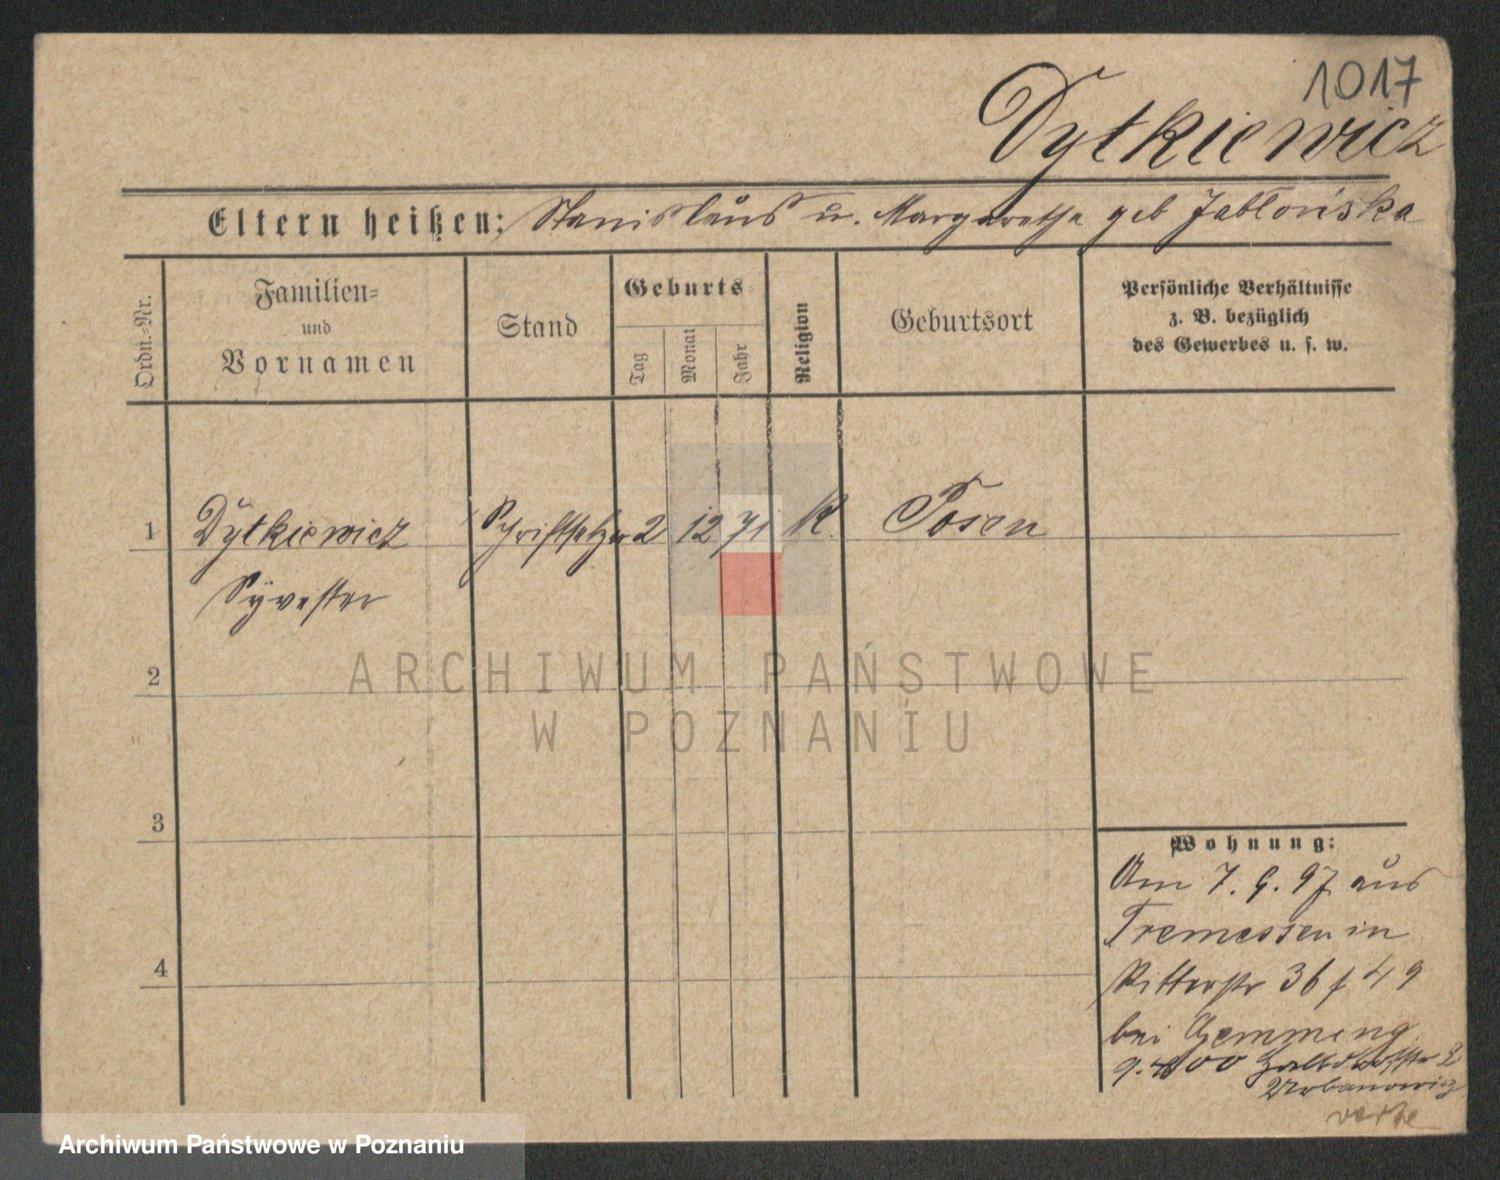 1017
Dytkiewicz
Eltern heißen: Stanislaus u. Margarethe geb Jabłońska
Ordn.-Nr.
Familien-
und
Vornamen
Stand
Geburts-
Tag
Monat
Jahr
Religion
Geburtsort
Persönliche Verhältnisse
z. B. bezüglich
des Gewerbes u. s. w.
1 Dytkiewicz Schriftsetzer 2 12 71 K. Posen
Sylvester
2
3
4
Wohnung:
Am 7. 9. 97 aus
Tremessen in
Ritterstr 36 / 49
bei Gemmeng
Urbanowicz
ARCHIWUM PAŃSTWOWE
W POZNANIU
Archiwum Państwowe w Poznaniu